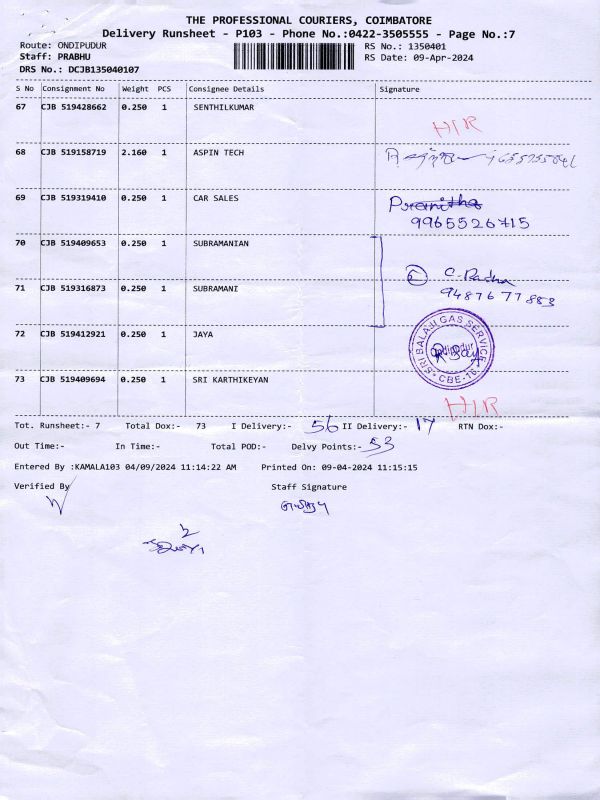 THE PROFESSIONAL COURIERS, COIMBATORE
Delivery Runsheet - P103 - Phone No.:0422-3505555 - Page No.:7
Route: ONDIPUDUR RS No.: 1350401
Staff: PRABHU RS Date: 09-Apr-2024
DRS No.: DCJB135040107
S No Consignment No Weight PCS Consignee Details Signature
67 CJB 519428662 0.250 1 SENTHILKUMAR
HIR
68 CJB 519158719 2.160 1 ASPIN TECH
69 CJB 519319410 0.250 1 CAR SALES Pranitha
9965526715
70 CJB 519409653 0.250 1 SUBRAMANIAN
C. Radha
71 CJB 519316873 0.250 1 SUBRAMANI 9487677883
72 CJB 519412921 0.250 1 JAYA
SRI BALAJI GAS SERVICE
CBE-16
73 CJB 519409694 0.250 1 SRI KARTHIKEYAN
HIR
Tot. Runsheet:- 7 Total Dox:- 73 I Delivery:- 56 II Delivery:- 17 RTN Dox:-
Out Time:- In Time:- Total POD:- Delvy Points:- 53
Entered By :KAMALA103 04/09/2024 11:14:22 AM Printed On: 09-04-2024 11:15:15
Verified By Staff Signature